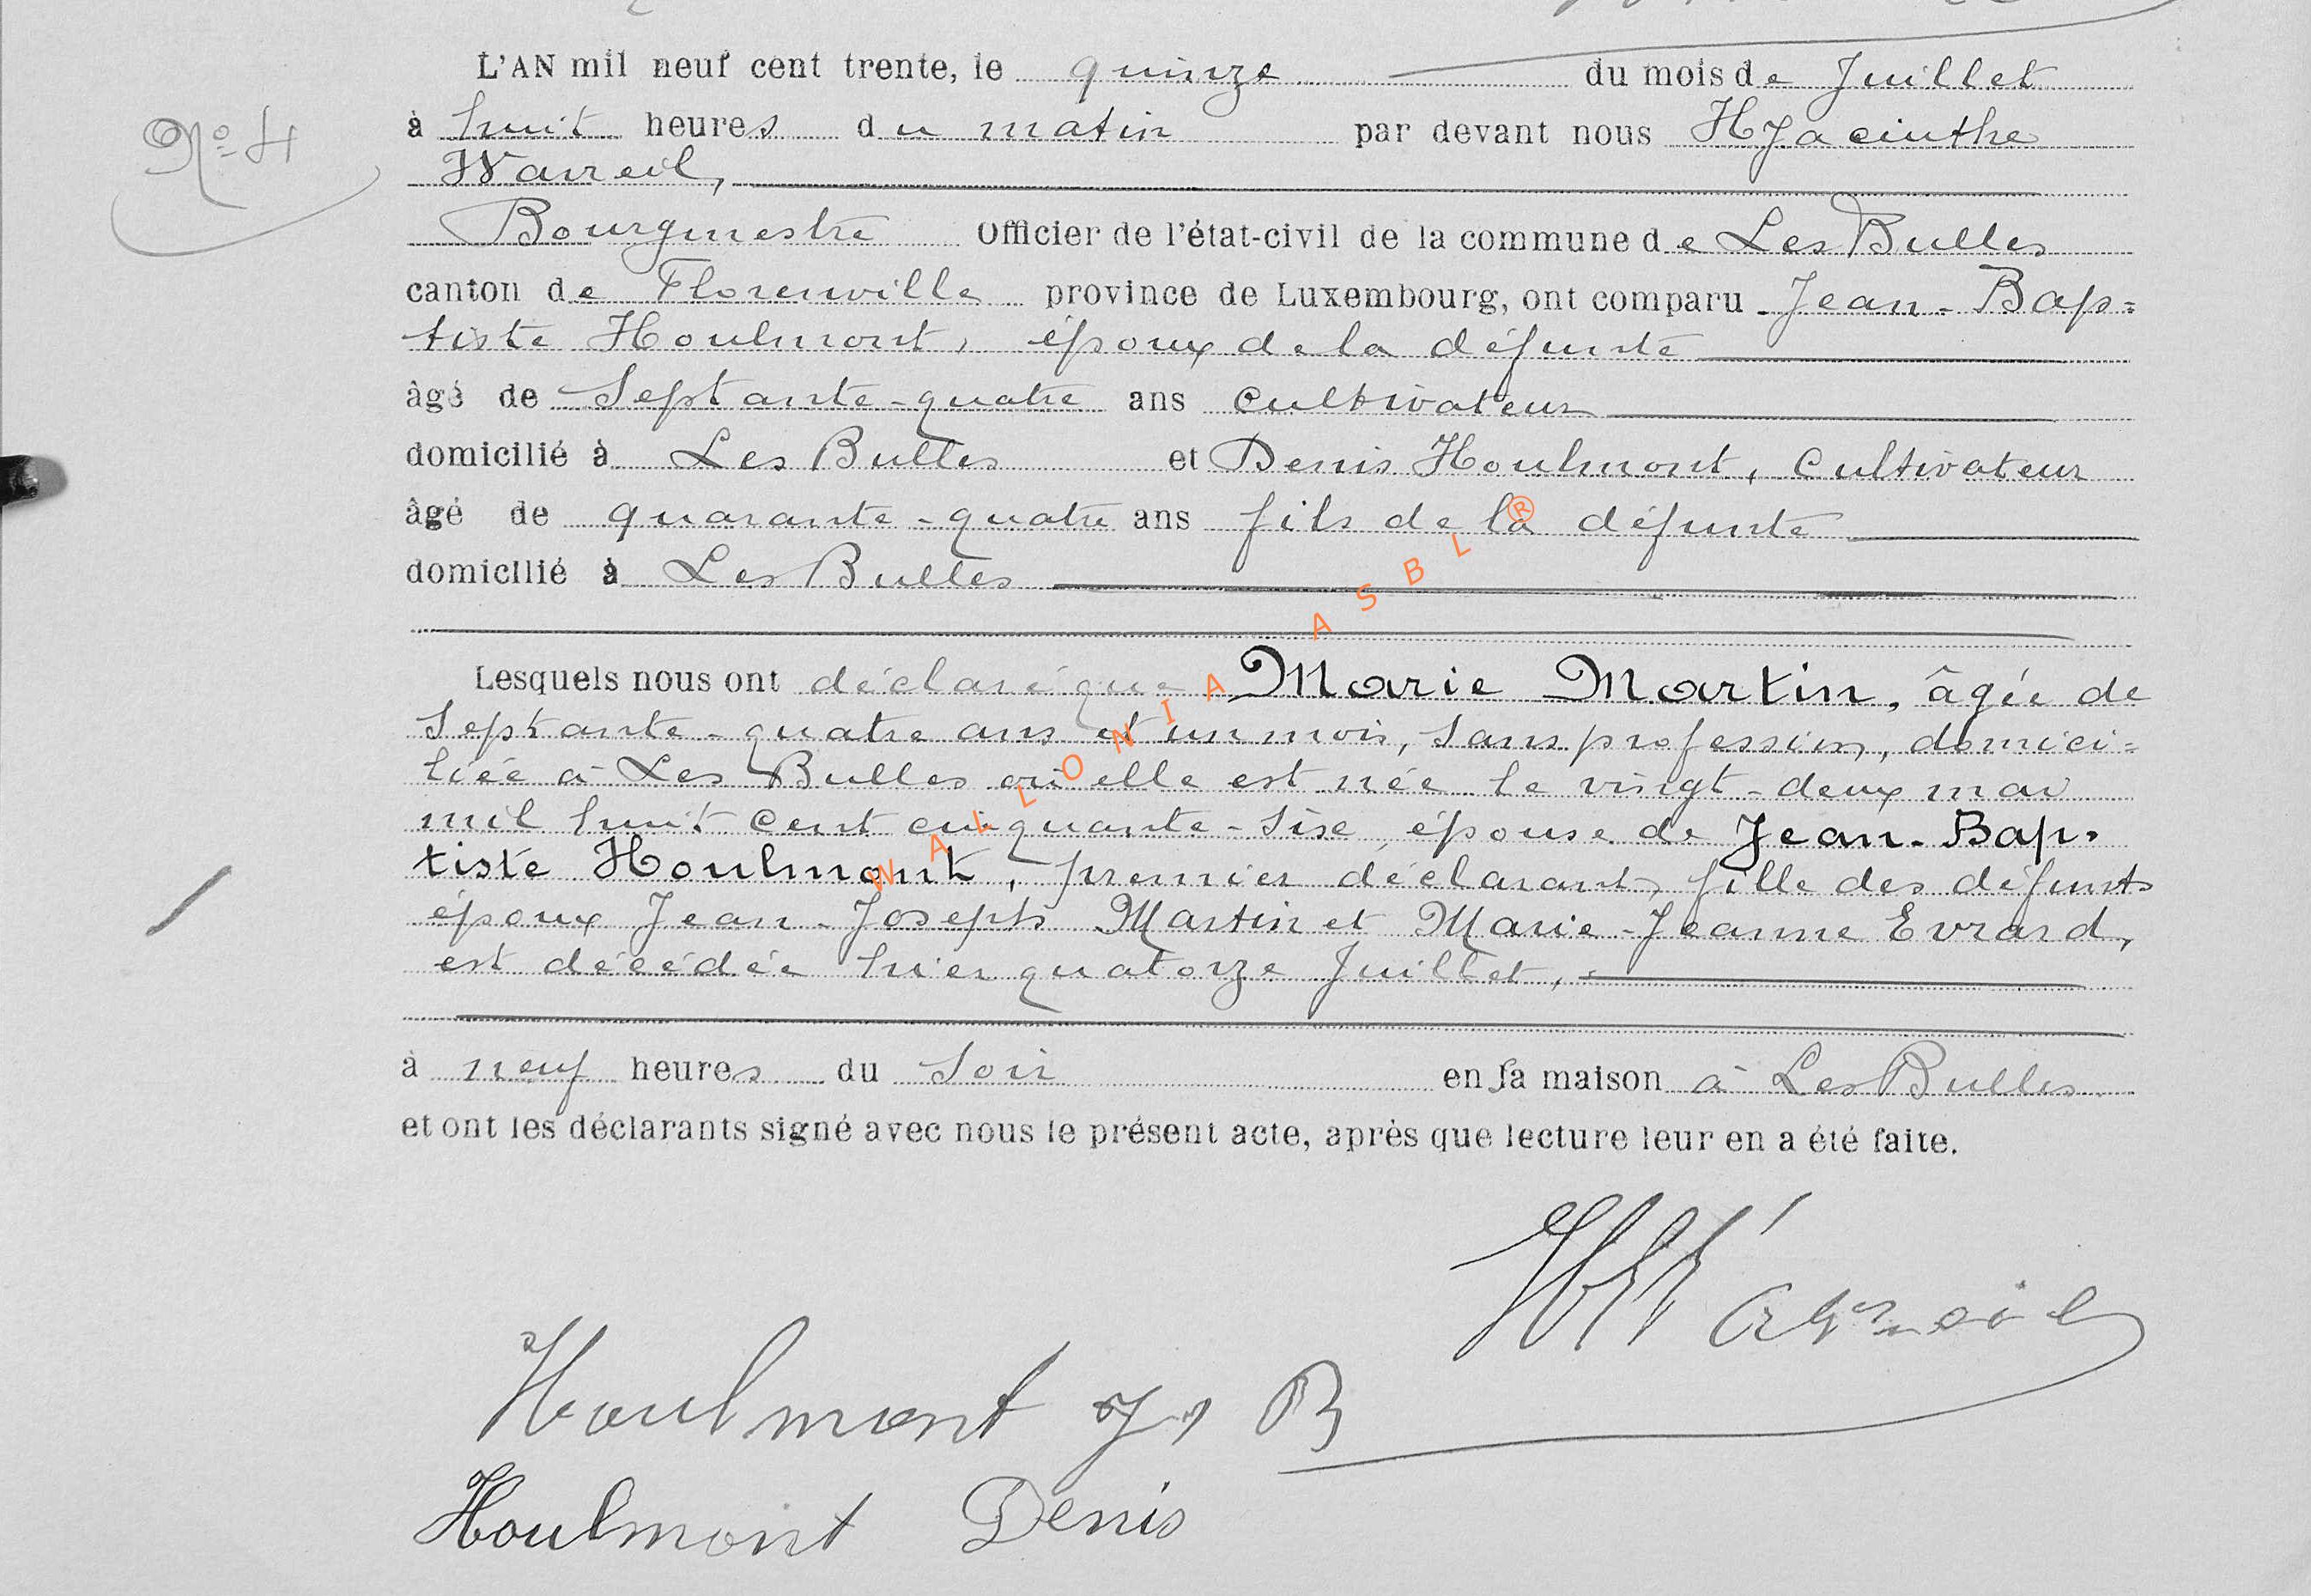 L'AN mil neuf cent trente, le quinze du mois de Juillet
Nº 4
à huit heures du matin par devant nous Hyacinthe
Wavreil,
Bourgmestre Officier de l'état-civil de la commune de Les Bulles
canton de Florenville province de Luxembourg, ont comparu Jean-Bap=
tiste Houlmont, époux de la défunte
âgé de Septante-quatre ans cultivateur
domicilié à Les Bulles et Denis Houlmont, cultivateur
âgé de quarante-quatre ans fils de la défunte
domicilié à Les Bulles
Lesquels nous ont déclaré que Marie Martin, âgée de
Septante-quatre ans et un mois, sans profession, domici=
liée à Les Bulles où elle est née le vingt-deux mai
mil huit cent cinquante-six, épouse de Jean-Bap-
tiste Houlmont, premier déclarant, fille des défunts
époux Jean-Joseph Martin et Marie-Jeanne Evrard,
est décédée hier quatorze Juillet,
à neuf heures du Soir en sa maison à Les Bulles
et ont les déclarants signé avec nous le présent acte, après que lecture leur en a été faite.
Houlmont J. B
Houlmont Denis
WALLONIA ASBL ®